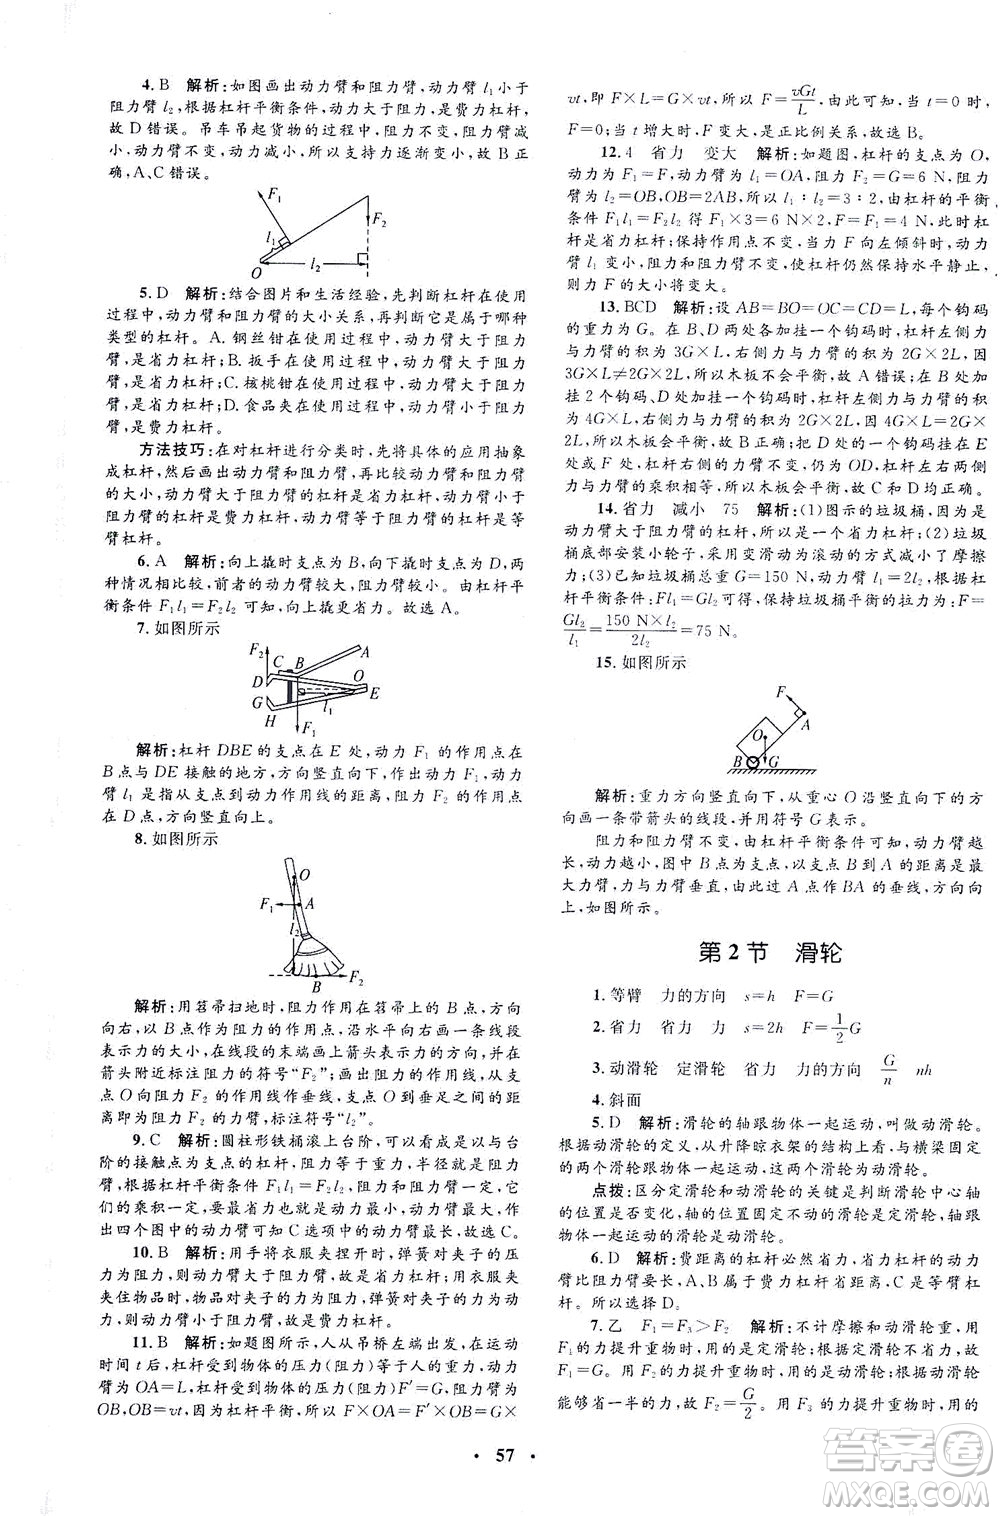 4. B 解析:如图画出动力臂和阻力臂,动力臂 l₁小于
阻力臂 l₂,根据杠杆平衡条件,动力大于阻力,是费力杠杆,
故 D 错误。吊车吊起货物的过程中,阻力不变,阻力臂减
小,动力臂不变,动力减小,所以支持力逐渐变小,故 B 正
确,A、C 错误。
F₁
F₂
l₁
O
l₂
5. D 解析:结合图片和生活经验,先判断杠杆在使用
过程中,动力臂和阻力臂的大小关系,再判断它是属于哪种
类型的杠杆。A. 钢丝钳在使用过程中,动力臂大于阻力
臂,是省力杠杆;B. 扳手在使用过程中,动力臂大于阻力
臂,是省力杠杆;C. 核桃钳在使用过程中,动力臂大于阻力
臂,是省力杠杆;D. 食品夹在使用过程中,动力臂小于阻力
臂,是费力杠杆。
方法技巧:在对杠杆进行分类时,先将具体的应用抽象
成杠杆,然后画出动力臂和阻力臂,再比较动力臂和阻力臂
的大小,动力臂大于阻力臂的杠杆是省力杠杆,动力臂小于
阻力臂的杠杆是费力杠杆,动力臂等于阻力臂的杠杆是等
臂杠杆。
6. A 解析:向上撬时支点为 D,向下撬时支点为 N,两
种情况相比较,前者的动力臂较大,阻力臂较小,由杠杆平
衡条件 F₁l₁=F₂l₂ 可知,向上撬更省力。故选 A。
7. 如图所示
F₂
C B A
D
O
G E
H l₁
F₁
解析:杠杆 DBE 的支点在 E 处,动力 F₁ 的作用点在
B 点与 DE 接触的地方,方向竖直向下,作出动力 F₁,动力
臂 l₁ 是从支点到动力作用线的距离,阻力 F₂ 的作用点
在 D 点,方向竖直向上。
8. 如图所示
O
F₁ A
l₂
F₂
B
解析:用笤帚扫地时,阻力作用在笤帚上的 B 点,方向
向右,以 B 点作为阻力的作用点,沿水平向右画一条线段
表示阻力的大小,在线段的末端画上箭头表示力的方向,在
箭头附近标注阻力的符号“F₂”;画出阻力的作用线,从支
点 O 向阻力 F₂ 的作用线作垂线,支点 O 到垂足之间的距
离即为阻力 F₂ 的力臂,标注符号“l₂”。
9. C 解析:圆柱形铁桶滚上台阶,可以看成是以与台
阶的接触点为支点的杠杆,阻力等于重力,半径等于阻力
臂,根据杠杆平衡条件 F₁l₁=F₂l₂,阻力和阻力臂一定,它
们的乘积一定,要想最省力则需要动力臂最大,作
出四个图中的动力臂可知 C 选项中的动力臂最长。故选 C。
10. B 解析:用手将衣服夹捏开时,弹簧对夹子的压
力为阻力,动力臂大于阻力臂,是省力杠杆;用衣服夹
夹住物品时,物品对夹子的力为阻力,弹簧对夹子的力为动
力,动力臂小于阻力臂,是费力杠杆。
11. B 解析:如题图所示,人从吊桥左端出发,在运动
时间 t 后,杠杆受到物体的压力(阻力)等于人的重力,动力
臂为 OA=L,杠杆受到物体的压力(阻力)F′=G,阻力臂为
OB,OB=vt,因为杠杆平衡,所以满足 F×OA=F′×OB=G×
vt,即 F×L=G×vt,所以 F=vGt/L,由此可知,当 t=0 时,
F=0;当 t 增大时,F 变大,是正比例关系,故选 B。
12. 4 省力 变大 解析:如题图,杠杆的支点为 O,
动力为 F₁=F,动力臂为 l₁=OA,阻力 F₂=G=6 N,阻力
臂为 l₂=OB,OB=2AB,所以 l₁∶l₂=3∶2,由杠杆的平衡
条件 F₁l₁=F₂l₂ 得 F₁×3=6 N×2,F₁=F=4 N,此时杠
杆是省力杠杆;保持作用点不变,当力 F 向左倾斜时,动力
臂 l₁ 变小,阻力和阻力臂不变,使杠杆仍然保持水平静止,
则力 F 的大小将变大。
13. BCD 解析:设 AB=BO=OC=CD=L,每个钩码
的重力为 G。在 B、D 两处各加挂一个钩码时,杠杆左侧力
与力臂的积为 3G×L,右侧力与力臂的积为 2G×2L,因为
3G×L≠2G×2L,所以木板不会平衡,故 A 错误;同理,加
挂 2 个钩码、D 处加挂一个钩码时,杠杆左侧力与力臂的积为
4G×L,右侧力与力臂的积为 2G×2L,因为 4G×L=2G×
2L,所以木板会平衡,故 B 正确;把 B 处的一个钩码挂在 E
处时,杠杆右侧的力与力臂不变,仍为 OD,杠杆左右两侧力
与力臂的乘积相等,所以木板会平衡,故 C 和 D 均正确。
14. 省力 减小 75 解析:(1)图示的垃圾桶,因为是
动力臂大于阻力臂的杠杆,所以是一个省力杠杆;(2)垃圾
桶底部安装小轮子,采用变滑动为滚动的方式减小了摩擦
力;(3)已知垃圾桶总重 G=150 N,动力臂 l₁=2l₂,根据杠
杆平衡条件:Fl₁=Gl₂ 可得,保持垃圾桶平衡的拉力为:F=
Gl₂/l₁=150 N×l₂/2l₂=75 N。
15. 如图所示
F
A
O
B G
解析:重力方向竖直向下,从重心 O 沿竖直向下的方
向画一条带箭头的线段,并用符号 G 表示。
阻力和阻力臂不变,由杠杆平衡条件可知,动力臂越
长,动力越小,图中 B 点为支点,所以 B 到 A 的距离是最
大力臂,力与力臂垂直,由此过 A 点作 BA 的垂线,方向向
上,如图所示。
第 2 节 滑轮
1. 等臂 力的方向 s=h F=G
2. 省力 省力 力 s=2h F=1/2G
3. 动滑轮 定滑轮 省力 力的方向 G/n nh
4. 斜面
5. D 解析:滑轮的轴跟物体一起运动,叫做动滑轮。
根据动滑轮的定义,从升降晾衣架的结构上看,与横梁固定
的两个滑轮跟物体一起运动,这两个滑轮为动滑轮。
点拨:区分定滑轮和动滑轮的关键是判断滑轮中心轴
的位置是否变化,轴的位置固定不动的滑轮为定滑轮,轴跟
物体一起运动的滑轮为动滑轮。
6. D 解析:费距离的杠杆必然省力,省力杠杆的动力
臂比阻力臂要长,A、B 属于费力杠杆省距离,C 是等臂杠
杆。所以选 D。
7. 乙 F₁=F₃>F₂ 解析:不计摩擦和动滑轮重,用
F₁ 的力提升重物时,用的是定滑轮,定滑轮不省力,故
F₁=G。用 F₂ 的力提升重物时,用的是动滑轮,动滑轮
能够省一半的力,故 F₂=G/2。用 F₃ 的力提升重物时,用的
• 57 •
答案圈
MXQE.COM